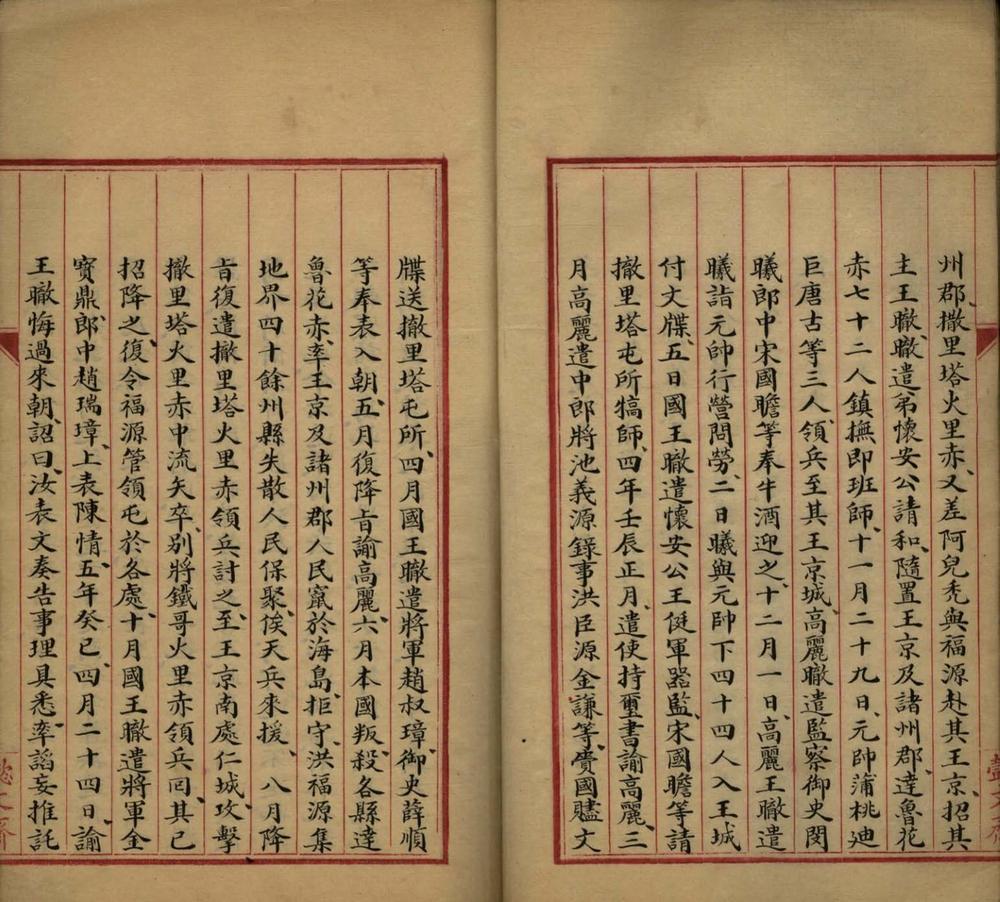 州郡、撒里塔火里赤、又差阿兒禿與福源赴其王京、招其
主王職、職遣弟懷安公請和、隨置王京及諸州郡、達魯花
赤七十二人鎮撫即班師、十一月二十九日、元帥蒲桃廸
巨唐古等三人、領兵至其王京城、高麗職遣監察御史閔
曦郎中宋國瞻等奉牛酒迎之、十二月一日、高麗王職遣
曦詣元帥行營問勞、二日曦與元帥下四十四人入王城
付文牒、五日國王職遣懷安公王侹軍器監、宋國瞻等請
撒里塔屯所犒師、四年壬辰正月、遣使持璽書諭高麗、三
月高麗遣中郎將池義源錄事洪臣源金謙等、賫國贐文
牒送撤里塔屯所、四月國王職遣將軍趙叔璋、御史薛順
等奉表入朝、五月復降旨諭高麗、六月本國叛、殺各縣達
魯花赤、率王京及諸州郡人民竄於海島、拒守、洪福源集
地界四十餘州縣失散人民保聚、俟天兵來援、八月降
旨復遣撤里塔火里赤領兵討之、至王京南處仁城、攻擊
撤里塔火里赤中流矢卒、別將鐵哥火里赤領兵回、其已
招降之、復令福源管領屯於各處、十月國王職遣將軍金
寶鼎、郎中趙瑞璋、上表陳情、五年癸巳、四月二十四日、諭
王職悔過來朝、詔曰、汝表文奏告事理具悉、率謟妄推託